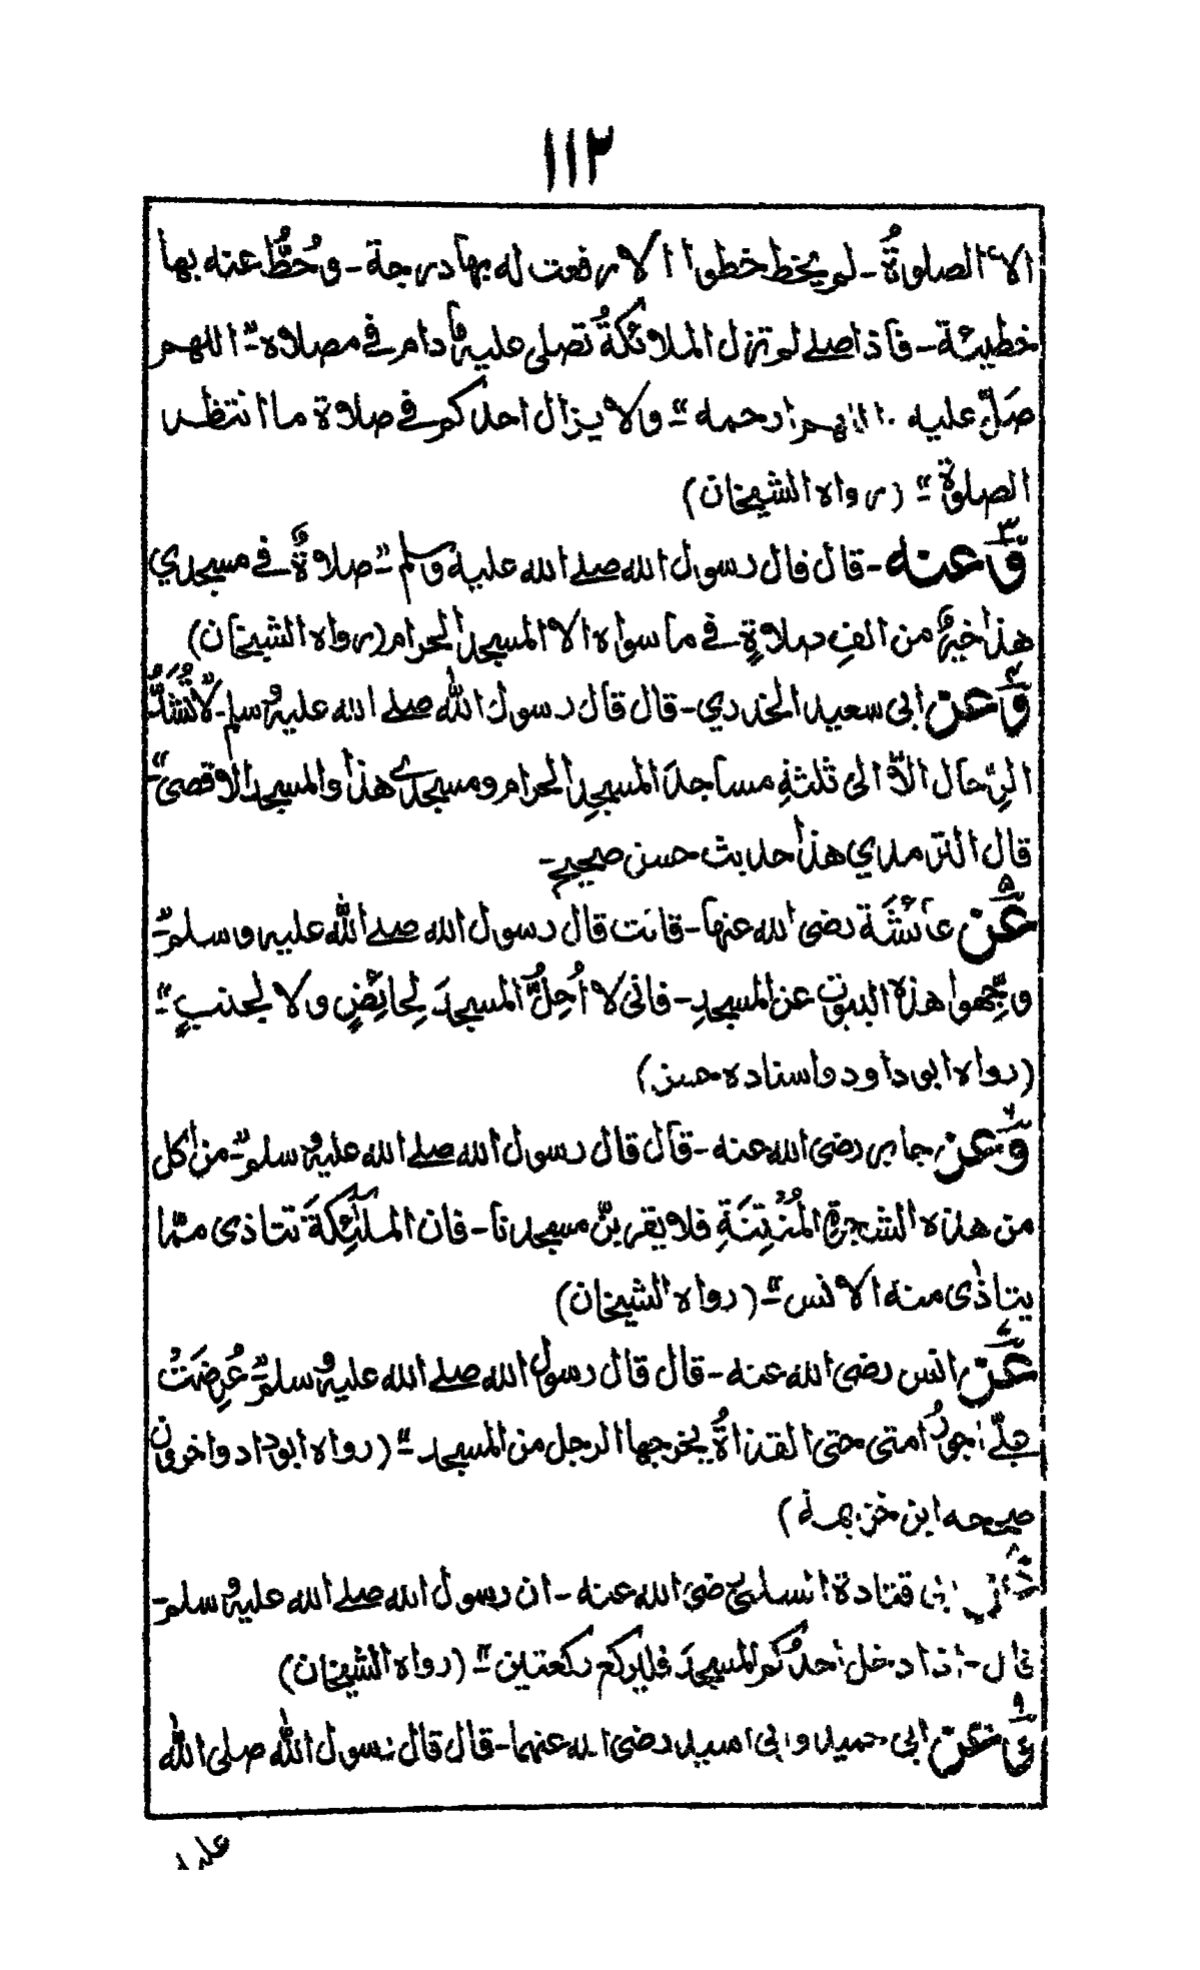 ١١٢
الا الصلوةُ ـ لم يخط خطوا الا رفعت له بها درجة ـ وحُطَّ عنه بها
خطيئة ـ فاذا صلے لم تزل الملائكةُ تصلى عليه ما دام فے مصلاه ـ" اللهم
صَلِّ عليه ٠ اللهم ارحمه "ـ ولا يزال احدكم فے صلاة ما انتظر
الصلوة "ـ (رواه الشيخان)
٣
وَعنه ـ قال قال رسول الله صلے الله عليه وسلم "ـ صلاةٌ فے مسجدي
هذا خيرٌ من الفِ صلاةٍ فے ما سواه الا المسجد الحرام (رواه الشيخان)
٤
وَعن ابى سعيد الخدري ـ قال قال رسول الله صلے الله عليه وسلم ـ لا تُشَدُّ
الرِّحال الّا الى ثلثةِ مساجدَ المسجدِ الحرام ومسجدے هذا والمسجد الاقصىٰ "ـ
قال الترمذي هذا حديث حسن صحيح ـ
٥
عَن عائشَة رضى الله عنها ـ قالت قال رسول الله صلے الله عليه وسلم "ـ
وجِّهوا هذه البيوت عن المسجدِ ـ فانى لا اُحِلُّ المسجدَ لِحائضٍ ولا لجنبٍ "ـ
(رواه ابو داود واسناده حسن)
٦
وَعن جابر رضى الله عنه ـ قال قال رسول الله صلے الله عليه وسلم "ـ من اكل
من هذه الشجرة المُنْتِنَةِ فلا يقربنّ مسجدنا ـ فان الملٰئِكةَ تتاذى ممّا
يتاذى منه الانس "ـ (رواه الشيخان)
٧
عَن انس رضى الله عنه ـ قال قال رسول الله صلے الله عليه وسلم "ـ عُرِضَتْ
علےّ اجورُ امتى حتى القذاةُ يخرجها الرجل من المسجد "ـ (رواه ابو داود واخرون
صححه ابن خزيمة)
٨
عَن ابى قتادة السلمى رضى الله عنه ـ ان رسول الله صلے الله عليه وسلم ـ
قال ـ اذا دخل احدُكم المسجدَ فليركع ركعتين "ـ (رواه الشيخان)
٩
وَعن ابى حميد وابى اسيد رضى الله عنهما ـ قال قال رسول الله صلى الله
عليه